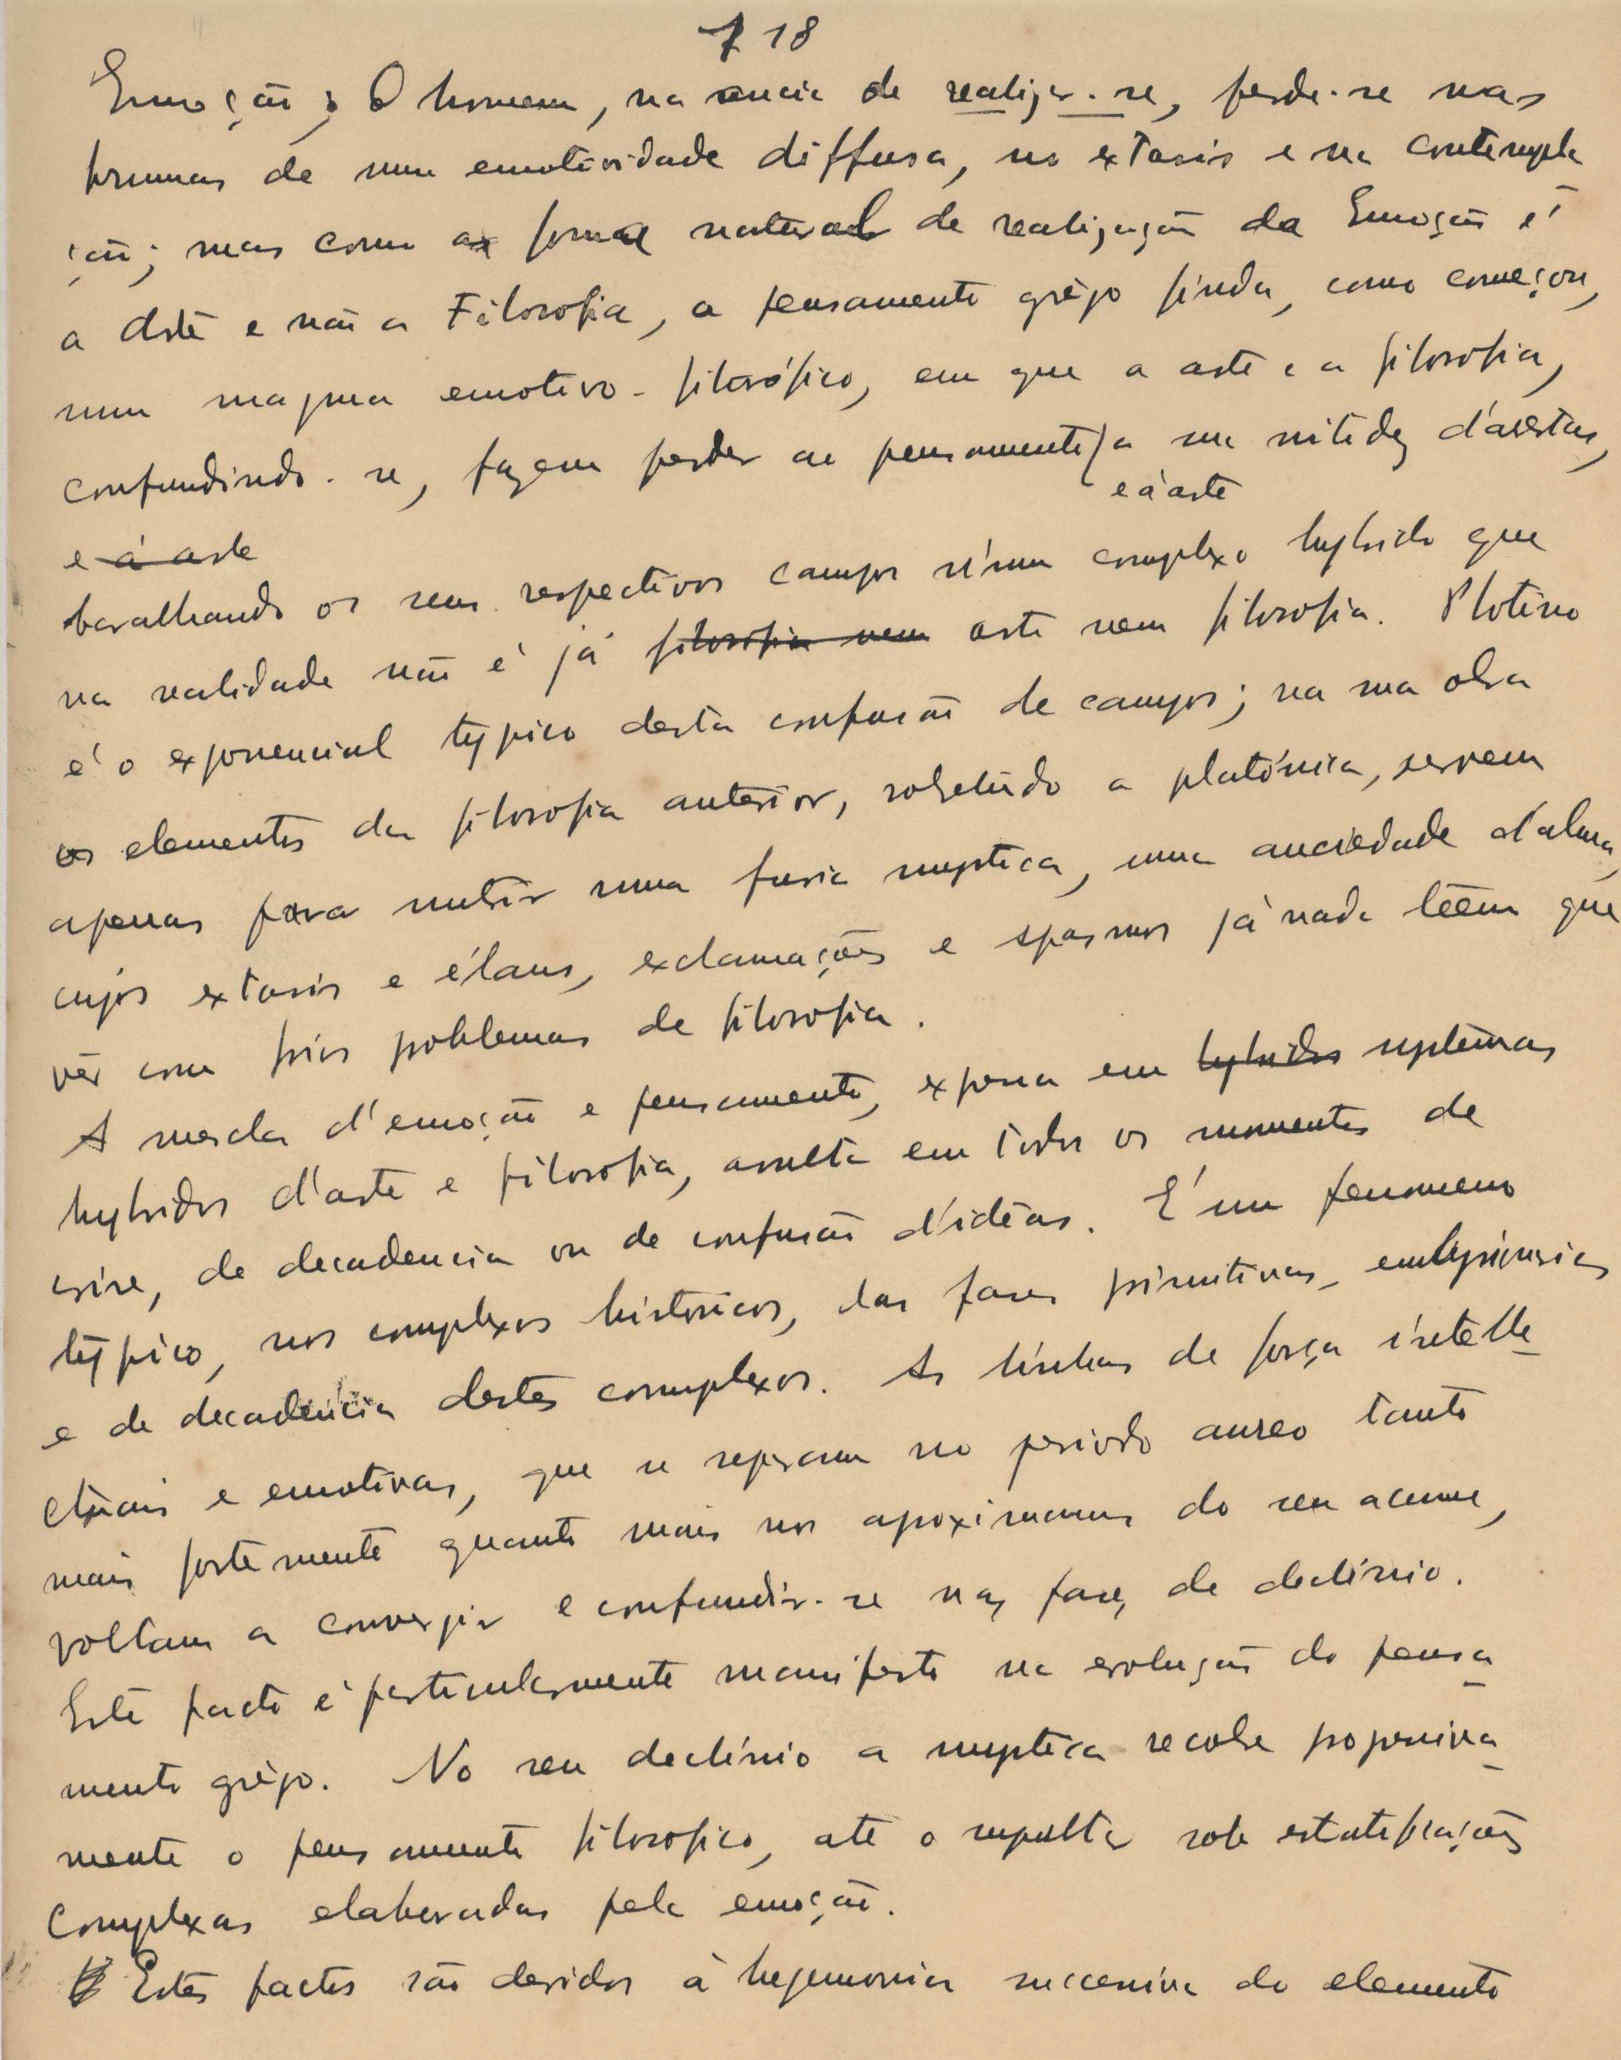 718
Emoção; O homem, na ancia de realizar-se, perde-se nas
brumas de uma emotividade diffusa, no extasis e na contempla
ção; mas como a forma natural de realização da Emoção é
a Arte e não a Filosofia, o pensamento grêgo finda, como começou,
num magma emotivo-filosófico, em que a arte e a filosofia,
confundindo-se, fazem perder ao pensamento a sua nitidez d'arestas,
e á arte
e á arte
baralhando os seus respectivos campos n'um complexo hybrido que
na realidade não é já filosofia nem arte nem filosofia. Plotino
é o exponencial typico desta confusão de campos; na sua obra
os elementos da filosofia anterior, sobretudo a platónica, servem
apenas para nutrir uma furia mystica, uma anciedade d'alma,
cujos extasis e élans, exclamações e spasmos já nada teem que
vêr com frios problemas de filosofia.
A mescla d'emoção e pensamento, expressa em hybridos systemas
hybridos d'arte e filosofia, avulta em todos os momentos de
crise, de decadencia ou de confusão d'idéas. É um fenomeno
typico, nos complexos historicos, das fases primitivas, embryonarias
e de decadencia destes complexos. As linhas de força intelle
ctuais e emotivas, que se separam no periodo aureo tanto
mais fortemente quanto mais nos aproximamos do seu acume,
voltam a convergir e confundir-se nas fases de declinio.
Este facto é particularmente manifesto na evolução do pensa
mento grêgo. No seu declinio a mystica recobre progressiva
mente o pensamento filosofico, até o sepultar sob estratificações
complexas elaboradas pela emoção.
Estes factos são devidos á hegemonia successiva do elemento